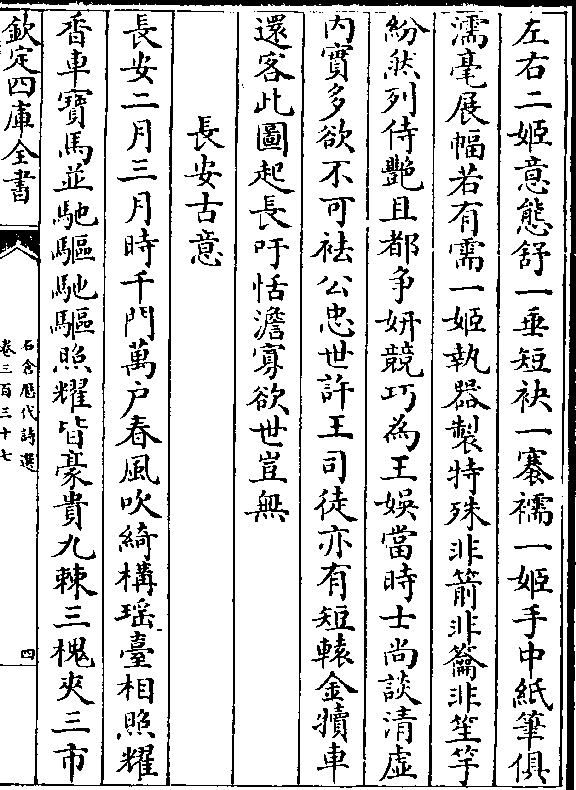 左右二姬意態舒一垂短袂一褰襦一姬手中紙筆俱
濡毫展幅若有需一姬執器製特殊非箭非籥非笙竽
紛然列侍艷且都争妍競巧為王娛當時士尚談清虛
内實多欲不可袪公忠世許王司徒亦有短轅金犢車
還客此圖起長吁恬澹寡欲世豈無
長安古意
長安二月三月時千門萬户春風吹綺構瑶臺相照耀
香車寶馬並馳驅馳驅照耀皆豪貴九棘三槐夾三市
欽定四庫全書
石倉歷代詩選
卷三百三十七
四